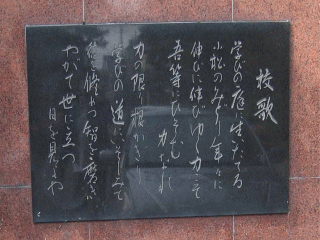 校歌
学びの庭に生ひたてる
小松のみどり年々に
伸びに伸びゆく力こそ
吾等にひそむ力なれ
力の限り根かぎり
学びの道にいそしみて
徳を修めつ智を磨き
やがて世に立つ
日を見よや